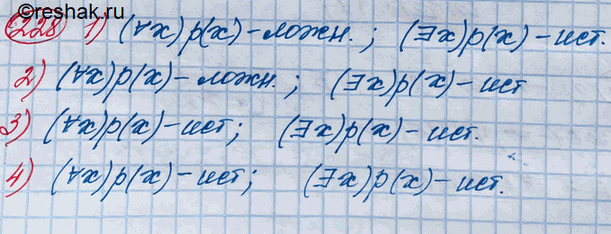 ©reshak.ru
228 1) (∀x)p(x) – ложн. ; (∃x)p(x) – ист.
2) (∀x)p(x) – ложн. ; (∃x)p(x) – ист
3) (∀x)p(x) – ист ; (∃x)p(x) – ист.
4) (∀x)p(x) – ист ; (∃x)p(x) – ист.